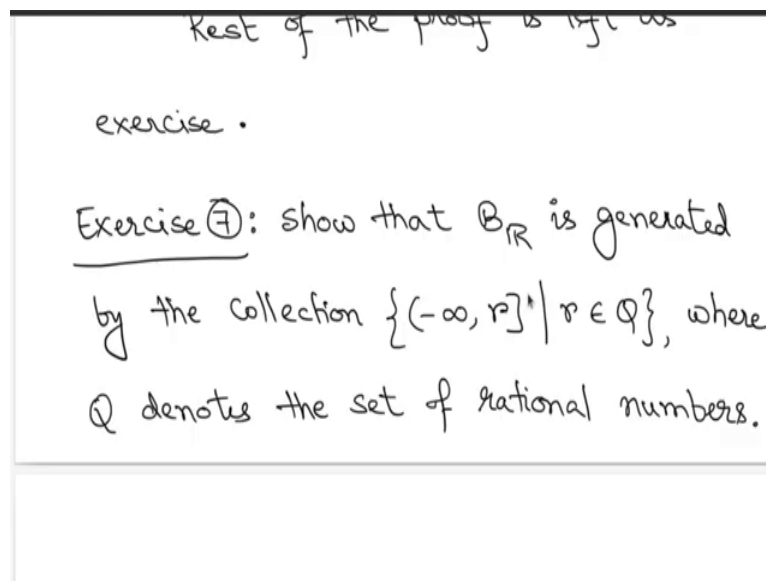 Rest of the proof is left as
exercise.
Exercise ⑦: show that B_ℝ is generated
by the collection {(-∞, r] | r ∈ Q}, where
Q denotes the set of rational numbers.